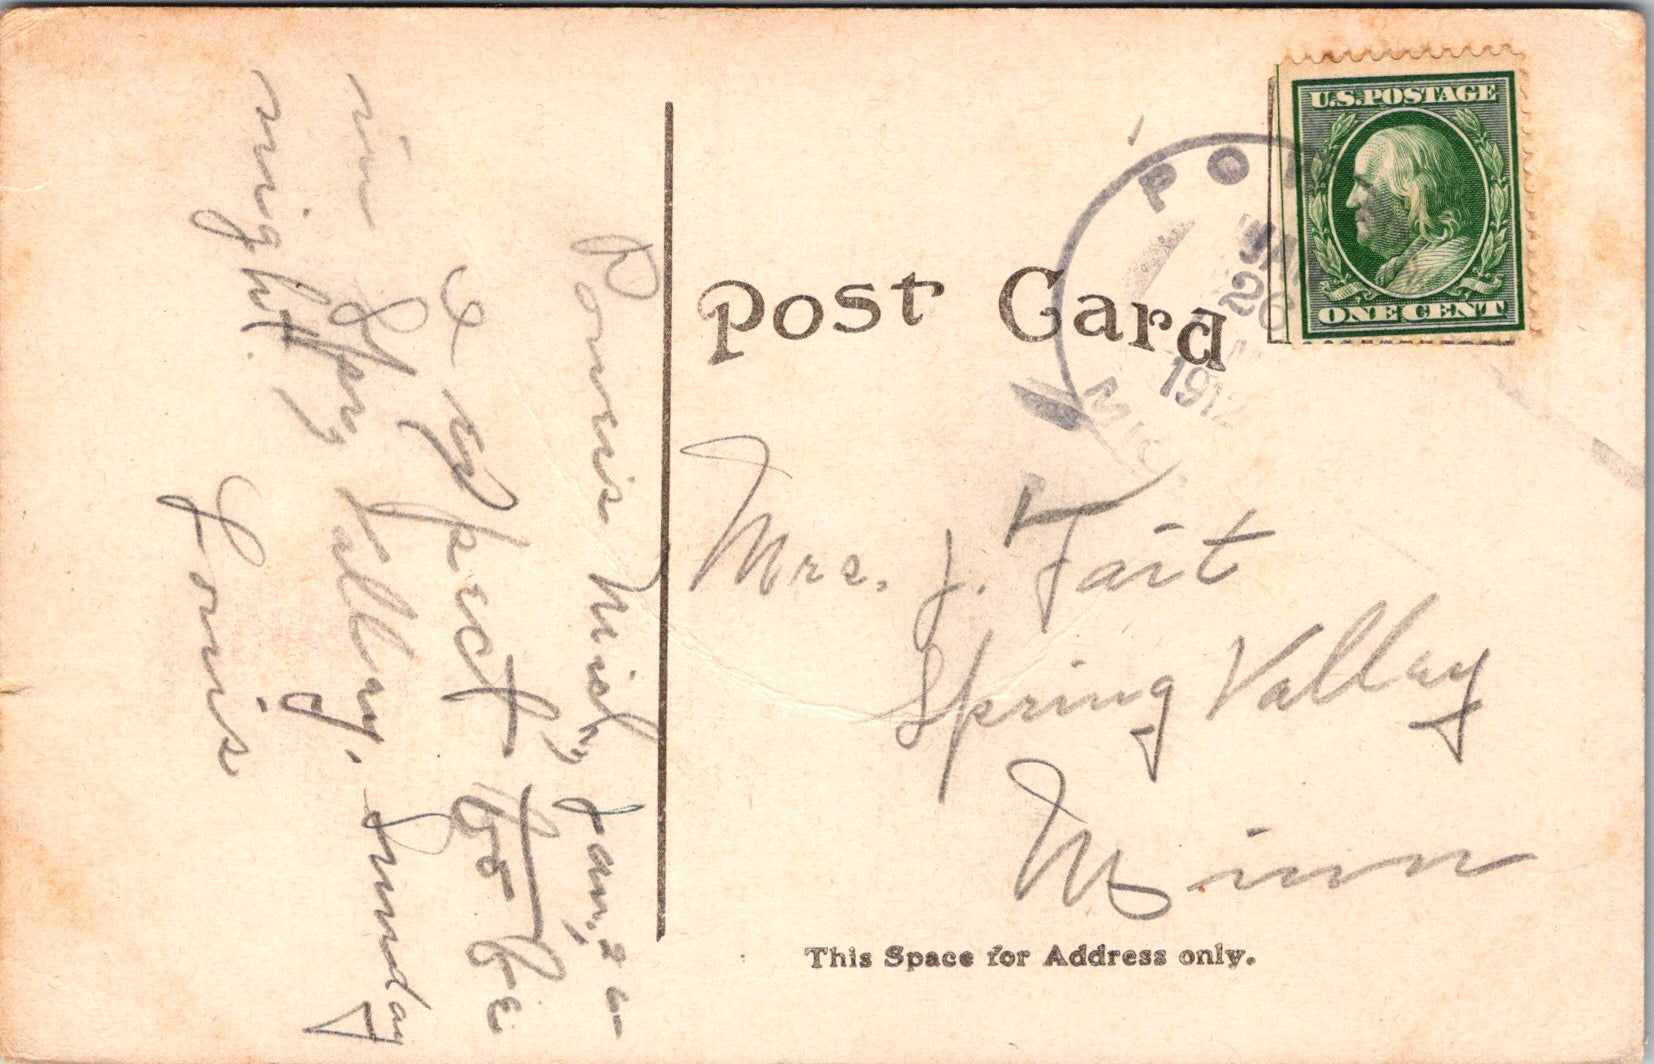 Powers Mich, Jan, 26
I expect to be
in Spg Valley, Sunday
night.
Louis
Post Card
U.S. POSTAGE
ONE CENT
JAN
26
1912
MICH
Mrs. J. Tart
Spring Valley
Minn
This Space for Address only.